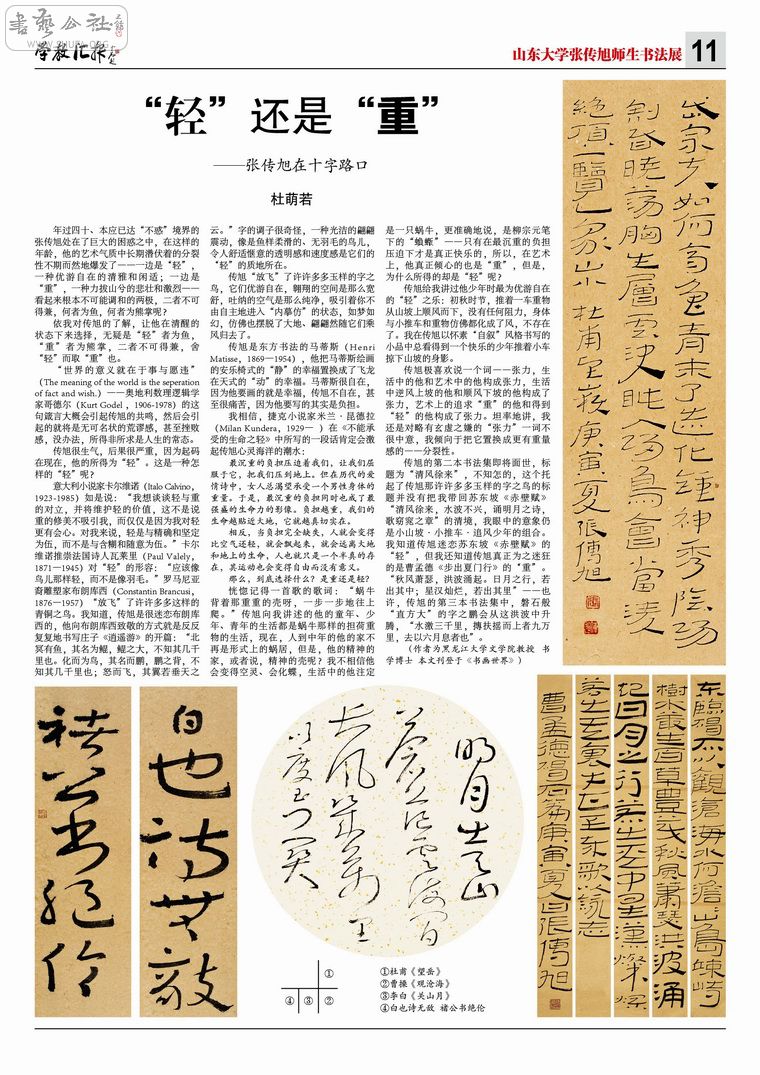 書藝公社
WWW.SHUFA.ORG
学教汇报
山东大学张传旭师生书法展
11
“轻”还是“重”
——张传旭在十字路口
杜萌若
年过四十、本应已达“不惑”境界的
张传旭处在了巨大的困惑之中，在这样的
年龄，他的艺术气质中长期潜伏着的分裂
性不期而然地爆发了——一边是“轻”，
一种优游自在的清雅和闲适；一边是
“重”，一种力拔山兮的悲壮和激烈——
看起来根本不可能调和的两极，二者不可
得兼，何者为鱼，何者为熊掌呢？
依我对传旭的了解，让他在清醒的
状态下来选择，无疑是“轻”者为鱼，
“重”者为熊掌，二者不可得兼，舍
“轻”而取“重”也。
“世界的意义就在于事与愿违”
（The meaning of the world is the seperation
of fact and wish.）——奥地利数理逻辑学
家哥德尔（Kurt Godel ，1906-1978）的这
句箴言大概会引起传旭的共鸣，然后会引
起的就将是无可名状的荒谬感，甚至挫败
感，没办法，所得非所求是人生的常态。
传旭很生气，后果很严重，因为起码
在现在，他的所得为“轻”。这是一种怎
样的“轻”呢？
意大利小说家卡尔维诺（Italo Calvino，
1923-1985）如是说：“我想谈谈轻与重
的对立，并将维护轻的价值，这不是说
重的修美不吸引我，而仅仅是因为我对轻
更有会心。对我来说，轻是与精确和坚定
为伍，而不是与含糊和随意为伍。”卡尔
维诺推崇法国诗人瓦莱里（Paul Valely，
1871—1945）对“轻”的形容：“应该像
鸟儿那样轻，而不是像羽毛。”罗马尼亚
裔雕塑家布朗库西（Constantin Brancusi，
1876—1957）“放飞”了许许多多这样的
青铜之鸟。我知道，传旭是很迷恋布朗库
西的，他向布朗库西致敬的方式就是反反
复复地书写庄子《逍遥游》的开篇：“北
冥有鱼，其名为鲲，鲲之大，不知其几千
里也。化而为鸟，其名而鹏，鹏之背，不
知其几千里也；怒而飞，其翼若垂天之
云。”字的调子很奇怪，一种光洁的翩翩
震动，像是鱼样柔滑的、无羽毛的鸟儿，
令人舒适惬意的透明感和速度感是它们的
“轻”的质地所在。
传旭“放飞”了许许多多玉样的字之
鸟，它们优游自在，翱翔的空间是那么宽
舒，吐纳的空气是那么纯净，吸引着你不
由自主地进入“内摹仿”的状态，如梦如
幻，仿佛也摆脱了大地、翩翩然随它们乘
风归去了。
传旭是东方书法的马蒂斯（Henri
Matisse，1869—1954），他把马蒂斯绘画
的安乐椅式的“静”的幸福置换成了飞龙
在天式的“动”的幸福。马蒂斯很自在，
因为他要画的就是幸福，传旭不自在，甚
至很痛苦，因为他要写的其实是负担。
我相信，捷克小说家米兰·昆德拉
（Milan Kundera，1929— ）在《不能承
受的生命之轻》中所写的一段话肯定会激
起传旭心灵海洋的潮水：
最沉重的负担压迫着我们，让我们屈
服于它，把我们压到地上。但在历代的爱
情诗中，女人总渴望承受一个男性身体的
重量。于是，最沉重的负担同时也成了最
强盛的生命力的影像。负担越重，我们的
生命越贴近大地，它就越真切实在。
相反，当负担完全缺失，人就会变得
比空气还轻，就会飘起来，就会远离大地
和地上的生命，人也就只是一个半真的存
在，其运动也会变得自由而没有意义。
那么，到底选择什么？是重还是轻？
恍惚记得一首歌的歌词：“蜗牛
背着那重重的壳呀，一步一步地往上
爬。”传旭向我讲述的他的童年、少
年、青年的生活都是蜗牛那样的担荷重
物的生活，现在，人到中年的他的家不
再是形式上的蜗居，但是，他的精神的
家，或者说，精神的壳呢？我不相信他
会变得空灵、会化蝶，生活中的他注定
是一只蜗牛，更准确地说，是柳宗元笔
下的“蝜蝂”——只有在最沉重的负担
压迫下才是真正快乐的，所以，在艺术
上，他真正倾心的也是“重”，但是，
为什么所得的却是“轻”呢？
传旭给我讲过他少年时最为优游自在
的“轻”之乐：初秋时节，推着一车重物
从山坡上顺风而下，没有任何阻力，身体
与小推车和重物仿佛都化成了风，不存在
了。我在传旭以怀素“自叙”风格书写的
小品中总看得到一个快乐的少年推着小车
掠下山坡的身影。
传旭极喜欢说一个词——张力，生
活中的他和艺术中的他构成张力，生活
中逆风上坡的他和顺风下坡的他构成了
张力，艺术上的追求“重”的他和得到
“轻”的他构成了张力。坦率地讲，我
还是对略有玄虚之嫌的“张力”一词不
很中意，我倾向于把它置换成更有重量
感的——分裂性。
传旭的第二本书法集即将面世，标
题为“清风徐来”，不知怎的，这个托
起了传旭那许许多多玉样的字之鸟的标
题并没有把我带回苏东坡《赤壁赋》
“清风徐来，水波不兴，诵明月之诗，
歌窈窕之章”的清境，我眼中的意象仍
是小山坡·小推车·追风少年的组合。
我知道传旭迷恋苏东坡《赤壁赋》的
“轻”，但我还知道传旭真正为之迷狂
的是曹孟德《步出夏门行》的“重”。
“秋风萧瑟，洪波涌起。日月之行，若
出其中；星汉灿烂，若出其里”——也
许，传旭的第三本书法集中，磐石般
“直方大”的字之鹏会从这洪波中升
腾，“水激三千里，搏扶摇而上者九万
里，去以六月息者也”。
（作者为黑龙江大学文学院教授 书
学博士 本文刊登于《书画世界》）
岱宗夫如何齐鲁青未了造化钟神秀阴阳
割昏晓荡胸生层云决眦入归鸟会当凌
绝顶一览众山小 杜甫望岳庚寅夏张传旭
白也诗无敌
褚公书绝伦
明月出天山
苍茫云海间
长风几万里
吹度玉门关
东临碣石以观沧海水何澹澹山岛竦峙
树木丛生百草丰茂秋风萧瑟洪波涌
起日月之行若出其中星汉灿烂若
出其里幸甚至哉歌以咏志
曹孟德碣石篇庚寅夏日张传旭
①
④
③
②
①杜甫《望岳》
②曹操《观沧海》
③李白《关山月》
④白也诗无敌 褚公书绝伦